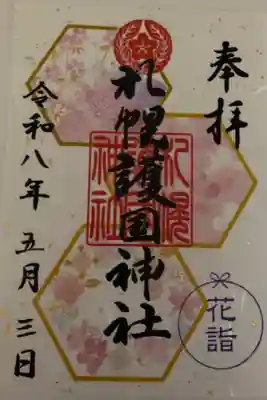 奉拝
札幌護国神社
札幌護国神社
令和八年五月三日
花詣